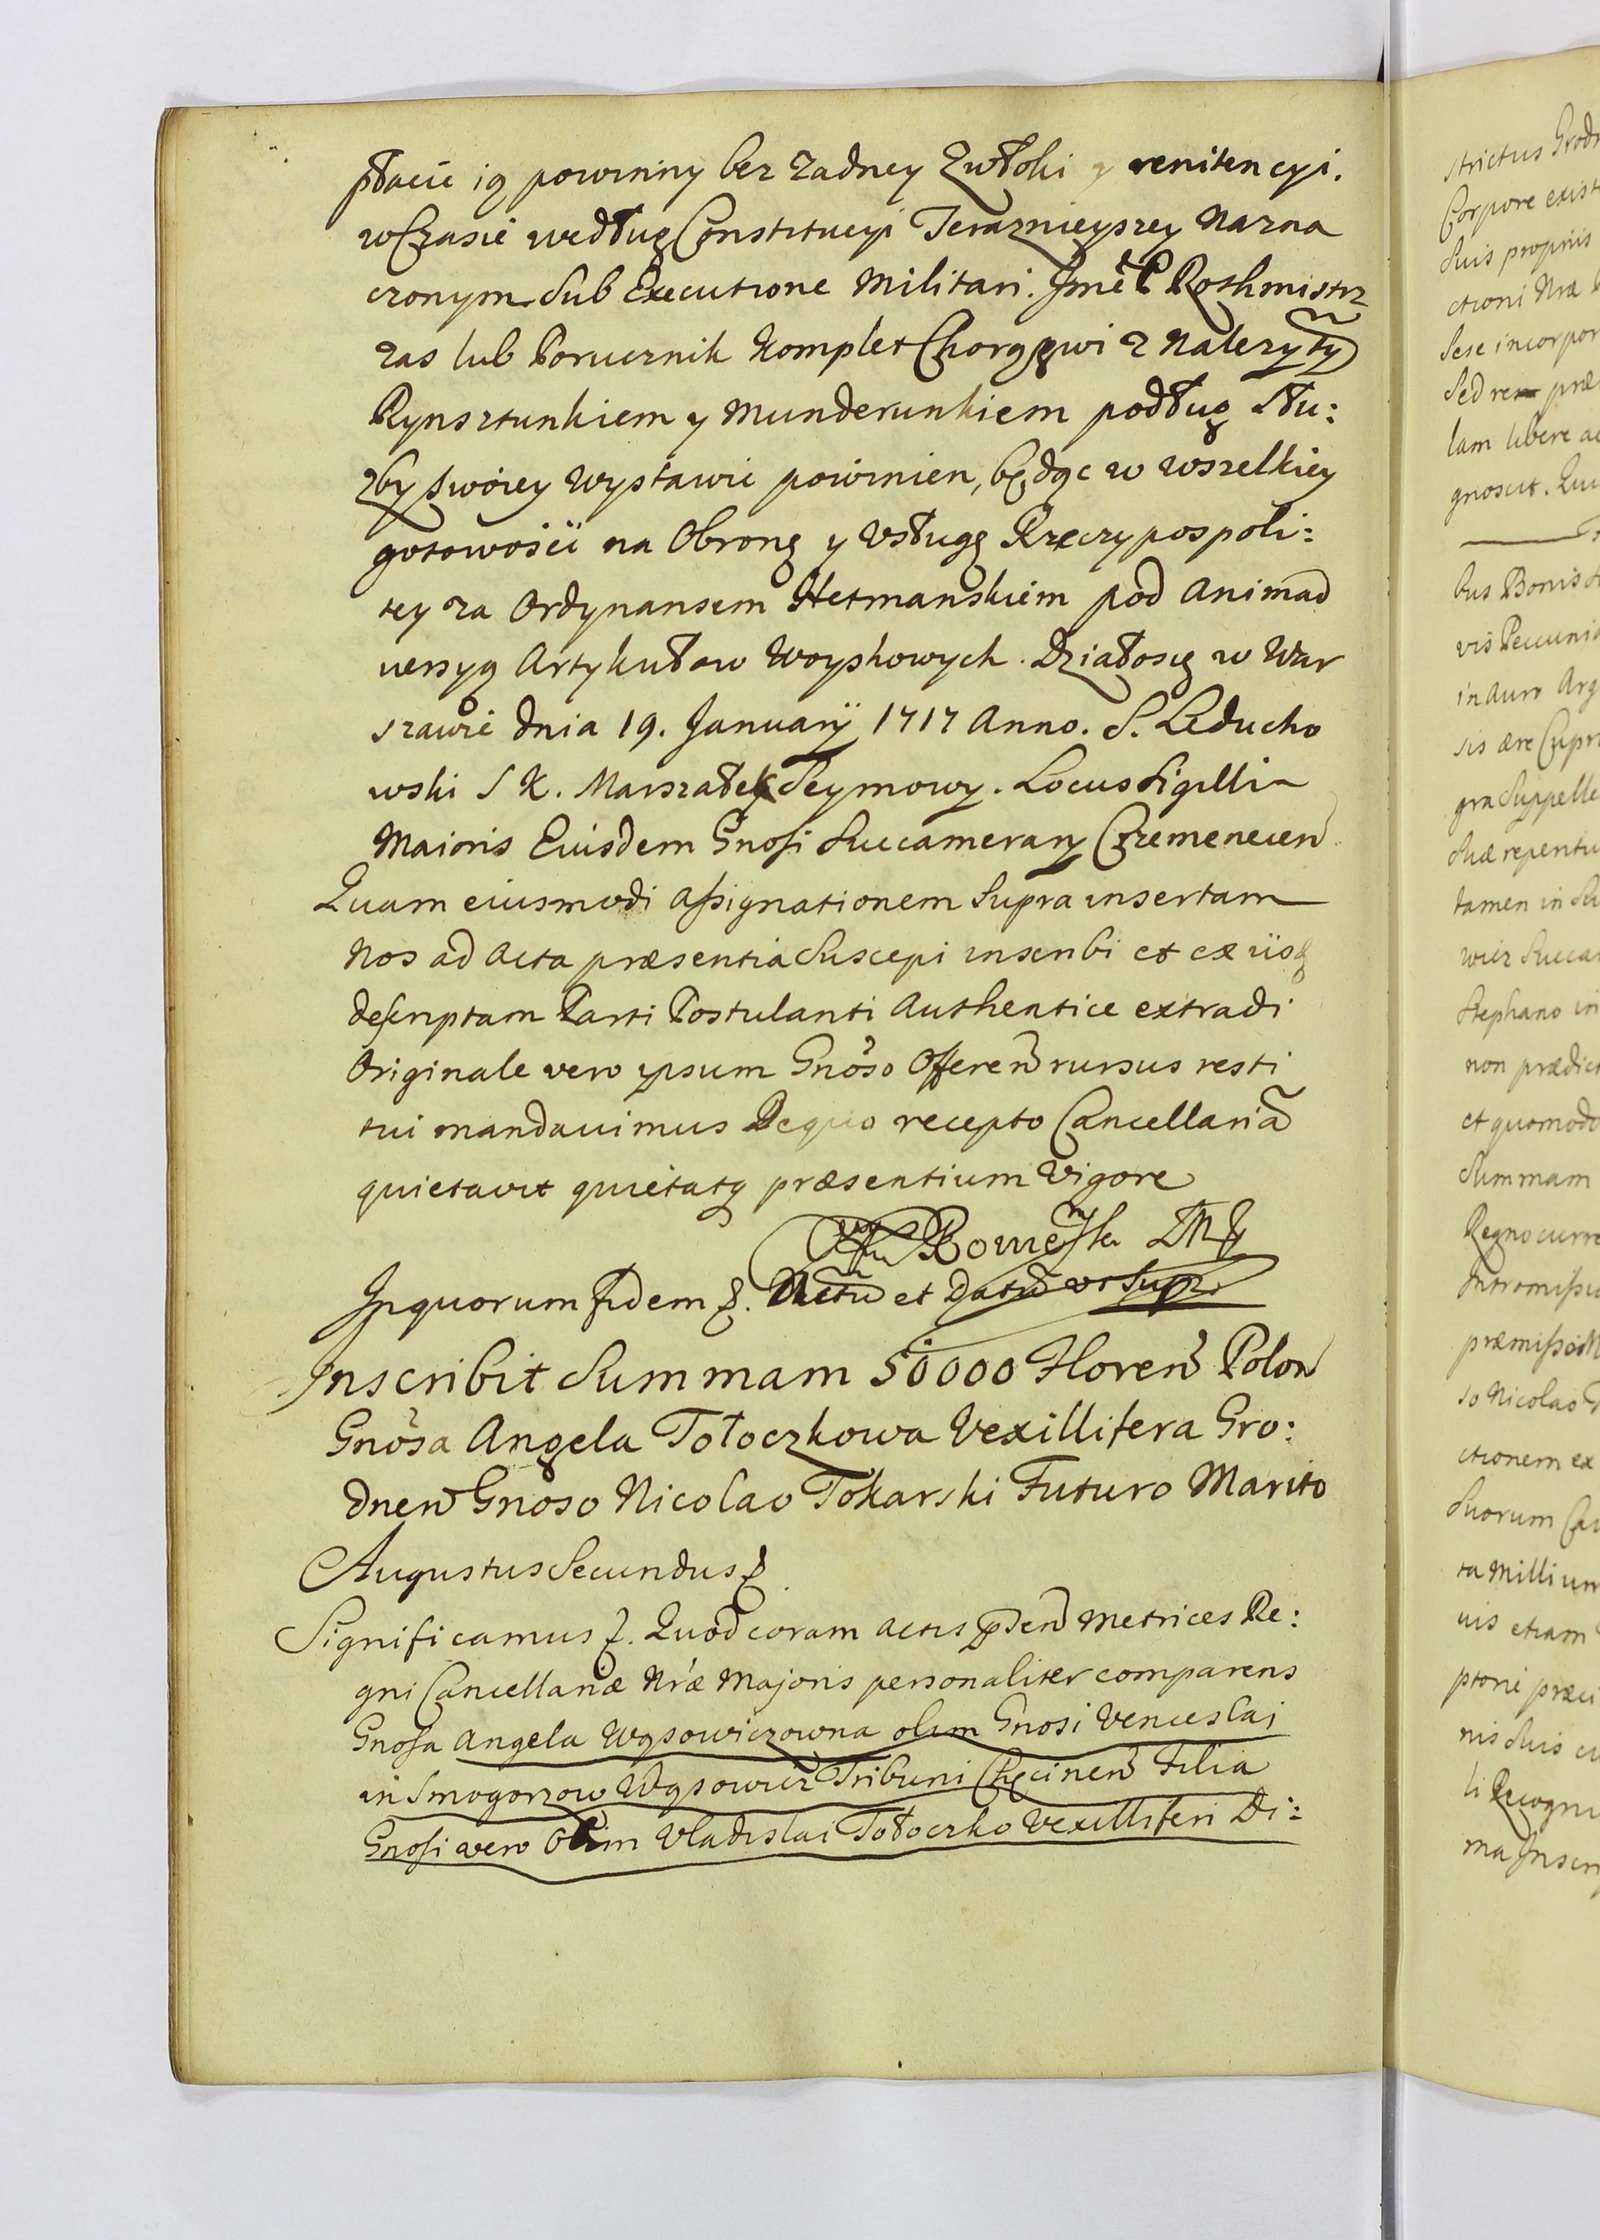 płacic ią powinny bez zadney zwłoki y renitencyi.
w Czasie według Constitucyi Teraznieyszey Nazna
czonym Sub Executione Militari. Jmć P Rothmistrz
zas lub Porucznik Komplet Chorągwi z Nalezytỹ
Rynsztunkiem y Munderunkiem podług słu:
zby swoiey wystawic powinien, będąc w wszelkiey
gotowosci na Obronę y Vsługę Rzeczypospoli:
tey za Ordynansem Hetmanskiem pod Animad
uersyą Artykułow Woyskowych. Działosię w War
szawie dnia 19. Januarÿ 1717 Anno. S. Leducho
wski S K. Marszałek Seymowy. Locus Sigilli
Maioris Eiusdem Gnosi Succamerary Czremenecen̄
Quam eiusmodi assignationem Supra insertam
Nos ad Acta præsentia Suscepi inscribi et ex iisq
descriptam Parti Postulanti Authentice extradi
Originale vero ypsum Gnoso Offeren̄ rursus resti
tui mandauimus Dequo recepto Cancellariã
quietavit quietatq præsentium Vigore
In quorum fidem &. Actũ et Datũ vt Supr.
Inscribit Summam 50000 Floren̄ Polon̄
Gnosa Angela Tołoczkowa Vexillifera Gro:
dnen̄ Gnoso Nicolao Tokarski Futuro Marito
Augustus Secundus &.
Significamus &. Quod coram actis pseñ Metrices Re:
gni Cancellariæ Nræ Majoris personaliter comparens
Gnosa Angela Wąsowiczowna olim Gnosi Venceslai
in Smogorzow Wąsowicz Tribuni Chęcinen̄ Filia
Gnosi vero Olim Vladislai Tołoczko Vexilliferi Di:
strictus Grodn
Corpore exist
Suis propriis
ctioni Nræ
Sese incorpor
Sed re præ
lam libere ac
gnoscit.
bus Bonis
vis Pecunia
in Auro Arg
sis ære Cupr
gra Suppelle
Suæ repentu
tamen in Su
wicz Succa
Stephano in
non prædict
et quomodo
Summam
Regno curre
Intromissi
præmisso
so Nicolao T
ctionem ex
Suorum
ta Millium
uis etiam
ptorie præci
nis Suis
li Recogni
ma Inscri